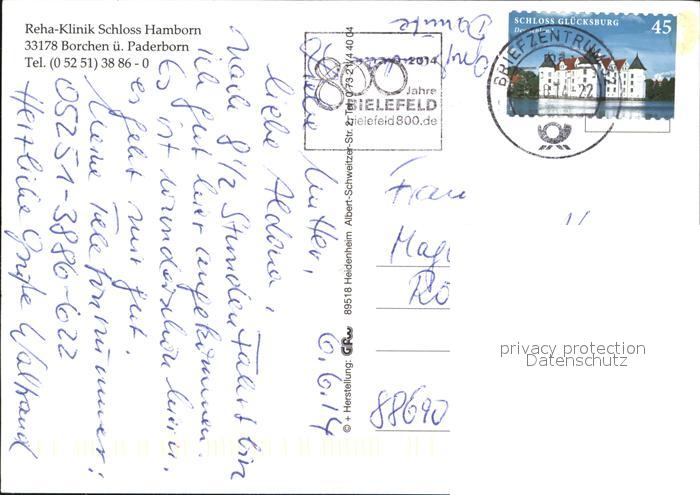 Reha-Klinik Schloss Hamborn
33178 Borchen ü. Paderborn
Tel. (0 52 51) 38 86 - 0
6.6.14
Liebe Mutter,
liebe Aldona,
nach 8 1/2 Stunden Fahrt bin
ich gut hier angekommen.
Es ist wunderschön hier,
es geht mir gut.
Meine Telefonnummer:
05251-3886-622
Herzliche Grüße Waltraud
© + Herstellung:
89518 Heidenheim Albert-Schweitzer-Str. 2 Tel. 0 73 21/4 40 04
800
2014
Jahre
BIELEFELD
bielefeld800.de
SCHLOSS GLÜCKSBURG
Deutschland
45
BRIEFZENTRUM
Frau
Mag
88690
privacy protection
Datenschutz